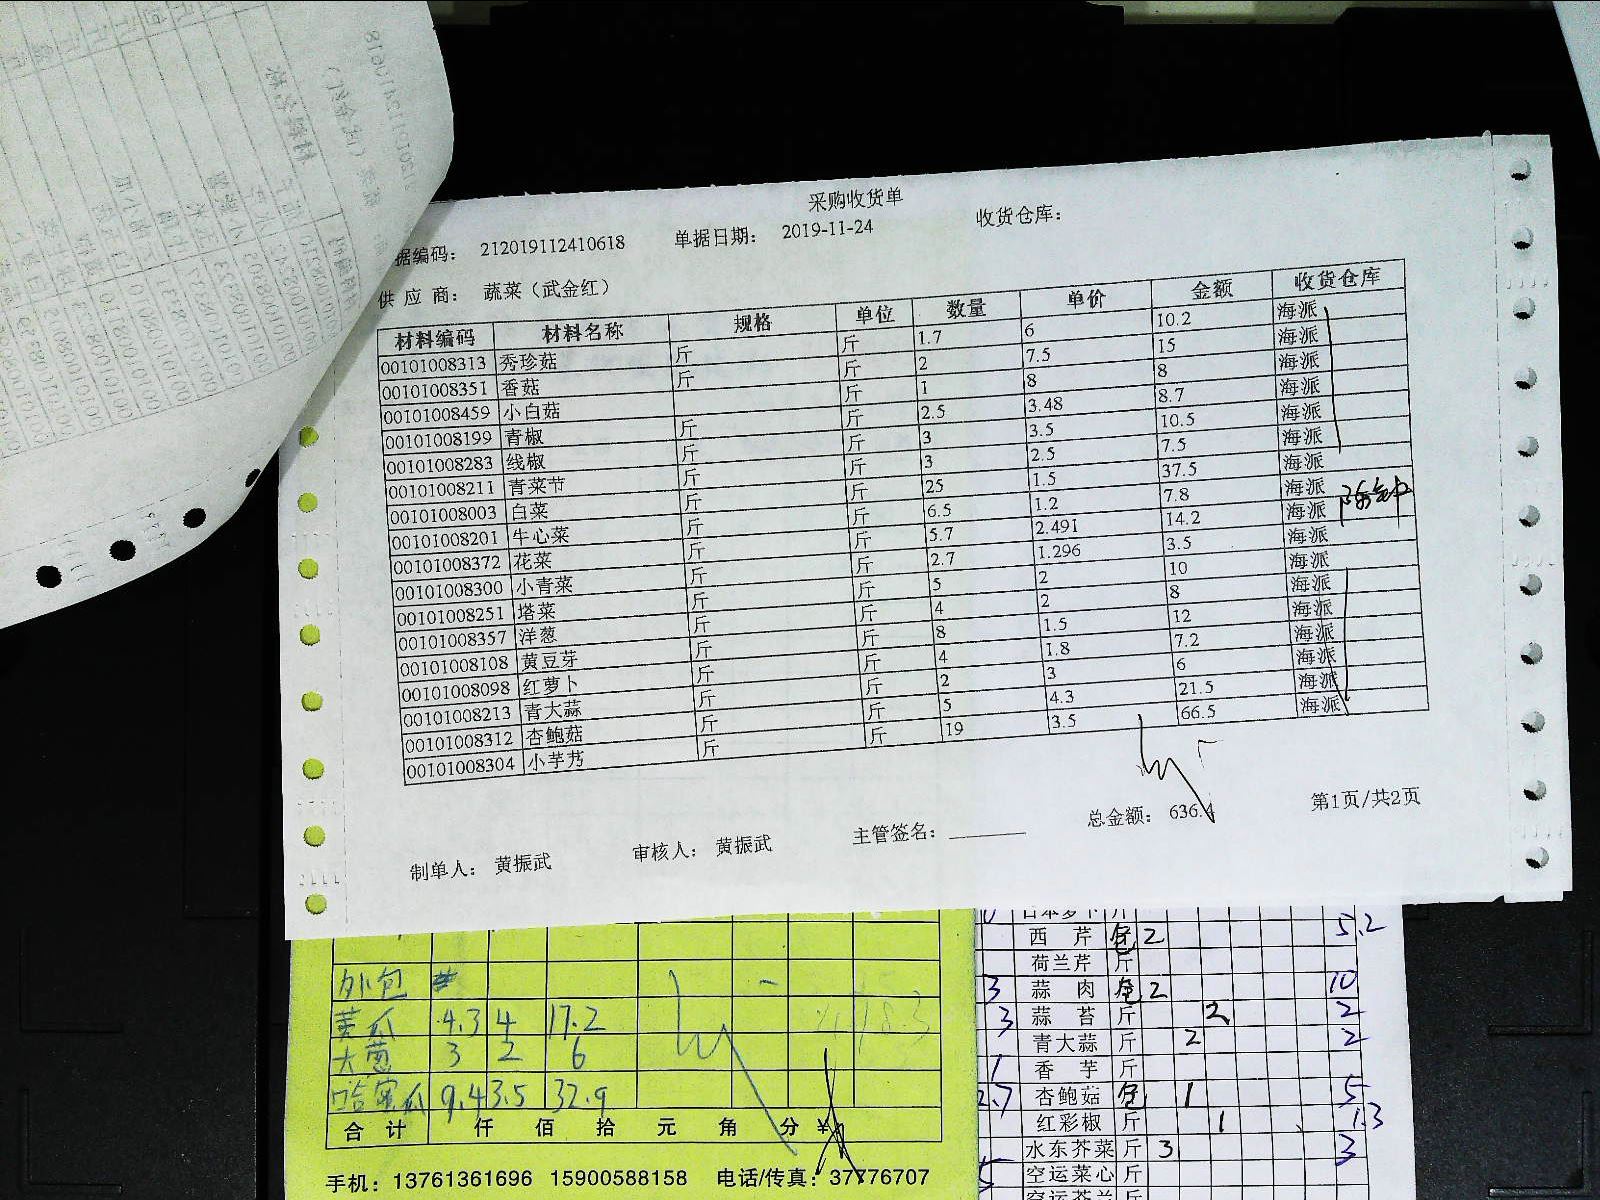 采购收货单
据编码： 212019112410618 单据日期： 2019-11-24 收货仓库：
供 应 商： 蔬菜（武金红）
材料编码 材料名称 规格 单位 数量 单价 金额 收货仓库
00101008313 秀珍菇 斤 斤 1.7 6 10.2 海派
00101008351 香菇 斤 斤 2 7.5 15 海派
00101008459 小白菇 斤 1 8 8 海派
00101008199 青椒 斤 斤 2.5 3.48 8.7 海派
00101008283 线椒 斤 斤 3 3.5 10.5 海派
00101008211 青菜节 斤 斤 3 2.5 7.5 海派
00101008003 白菜 斤 斤 25 1.5 37.5 海派
00101008201 牛心菜 斤 斤 6.5 1.2 7.8 海派
00101008372 花菜 斤 斤 5.7 2.491 14.2 海派
00101008300 小青菜 斤 斤 2.7 1.296 3.5 海派
00101008251 塔菜 斤 斤 5 2 10 海派
00101008357 洋葱 斤 斤 4 2 8 海派
00101008108 黄豆芽 斤 斤 8 1.5 12 海派
00101008098 红萝卜 斤 斤 4 1.8 7.2 海派
00101008213 青大蒜 斤 斤 2 3 6 海派
00101008312 杏鲍菇 斤 斤 5 4.3 21.5 海派
00101008304 小芋艿 斤 斤 19 3.5 66.5 海派
制单人： 黄振武 审核人： 黄振武 主管签名： 总金额： 636.4 第1页/共2页
外包
黄瓜 4.3 4 17.2
大葱 3 2 6
哈密瓜 9.4 3.5 32.9
合 计 仟 佰 拾 元 角 分 ¥
手机：13761361696 15900588158 电话/传真：37776707
日本萝卜 斤
西 芹 包 2 5.2
荷兰芹 斤
3 蒜 肉 包 2 10
3 蒜 苔 斤 2 2
青大蒜 斤 2 2
1 香 芋 斤
2.7 杏鲍菇 包 1 5
红彩椒 斤 1 1.3
水东芥菜 斤 3 3
5 空运菜心 斤
空运芥兰 斤